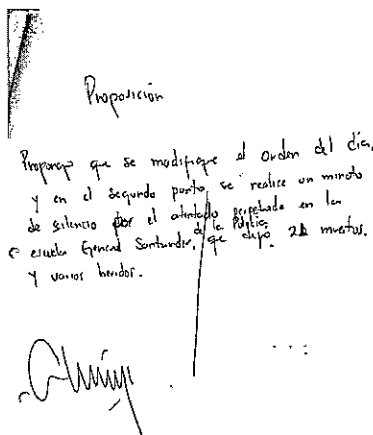 Proposición
Propongo que se modifique el orden del día,
y en el segundo punto, se realice un minuto
de silencio por el atentado perpetrado en la
escuela General Santander, de la Policía, que dejo 21 muertos.
y varios heridos.